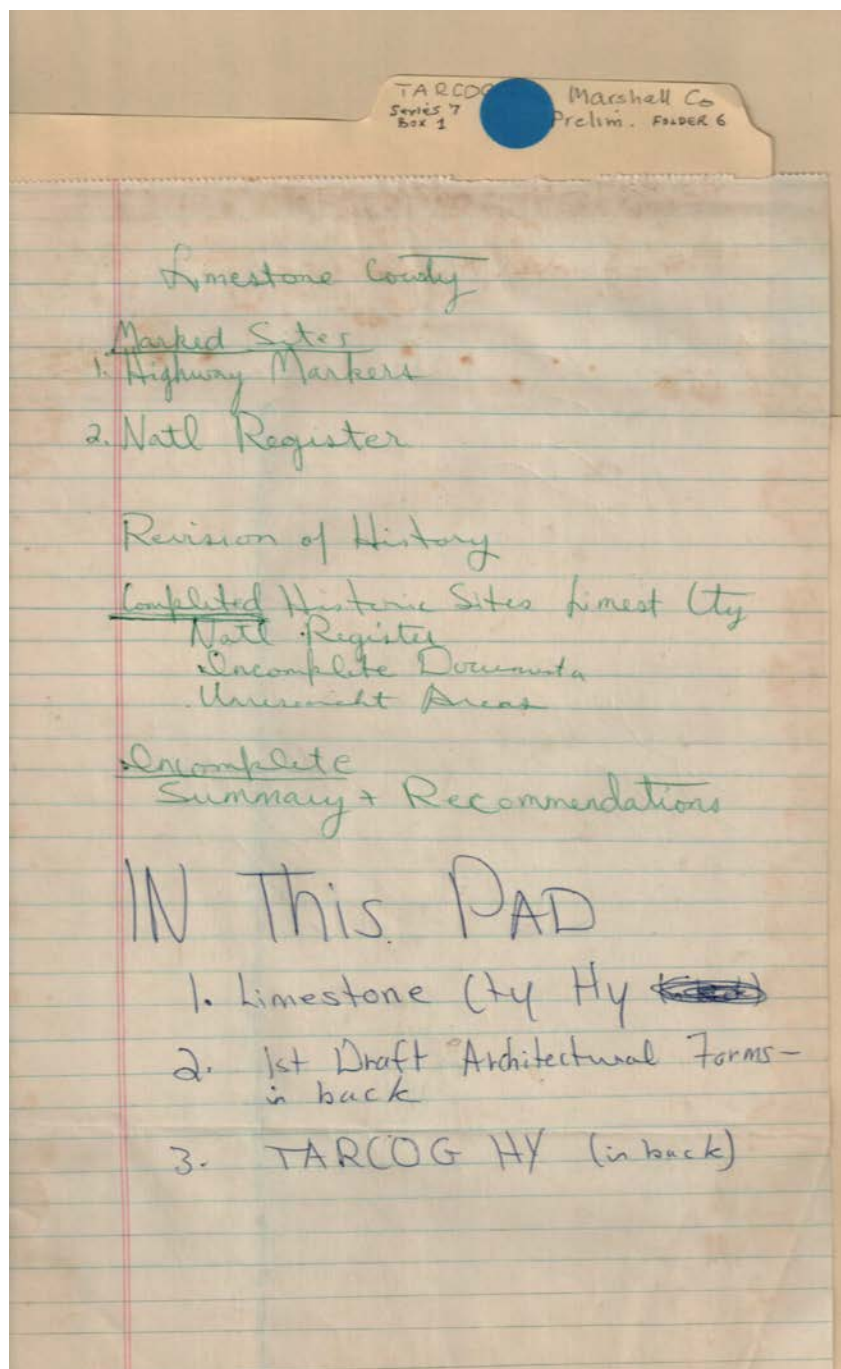 TARCOG
Series 7
Box 1
Marshall Co
Prelim. FOLDER 6
Limestone County
Marked Sites
1. Highway Markers
2. Natl Register
Revision of History
Completed Historic Sites Limest Cty
Natl Register
Incomplete Documenta
Areas
Incomplete
Summary + Recommendations
IN This PAD
1. Limestone Cty Hy
2. 1st Draft Architectural Forms-
in back
3. TARCOG HY (in back)